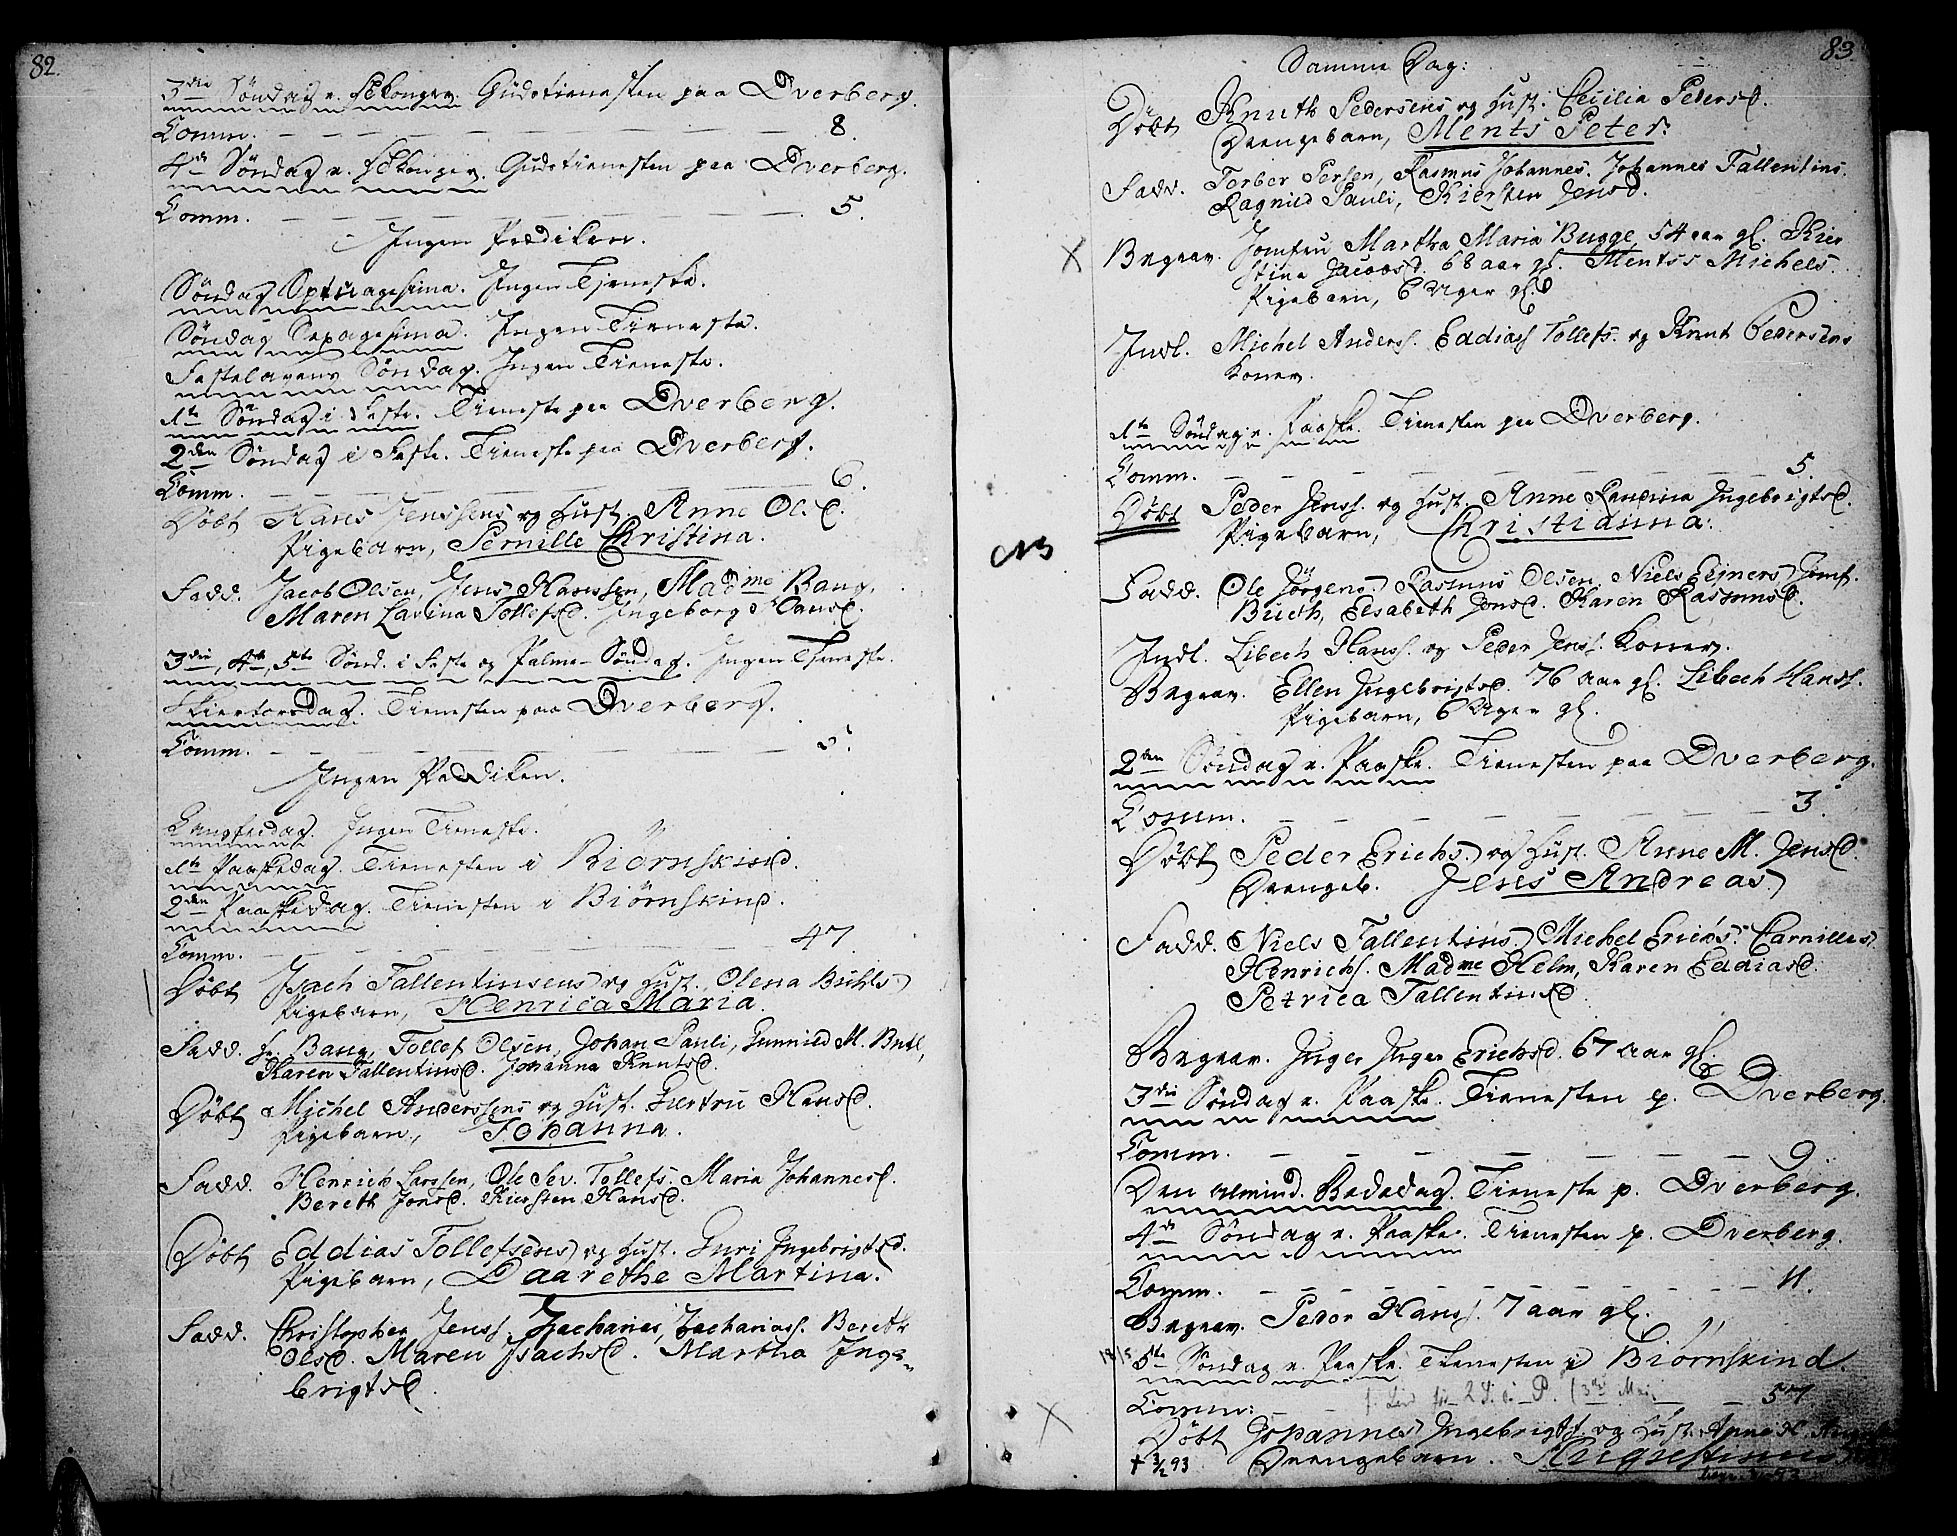 82.
3die Søndag e. H3Konger. Gudstienesten paa Dverberg.
Comm. 8.
4de Søndag e. H3Konger. Gudstienesten paa Dverberg.
Comm. 5.
Ingen Prædiken.
Søndag Septuagesima. Ingen Tjeneste.
Søndag Sexagesima. Ingen Tieneste.
Fastelavens Søndag. Ingen Tieneste.
1te Søndag i Faste. Tieneste paa Dverberg.
2den Søndag i Faste. Tieneste paa Dverberg.
Comm. 6.
Døbt Hans Jenssens og Hust. Anne Ols D.
Pigebarn, Pernille Christina.
Fadd. Jacob Olsen, Jens Hanssen, Madme Bang,
Maren Lavina Tollefsd. Ingeborg Hansd.
3die, 4de, 5te Sønd. i Faste og Palme-Søndag. Ingen Tjeneste.
Skiertorsdag. Tienesten paa Dverberg.
Comm.
Ingen Prædiken.
Langfredag. Ingen Tieneste.
1te Paaskedag. Tienesten i Biörnskind.
2den Paaskedag. Tienesten i Biørnskind.
Comm. 47
Døbt Isach Fallentinsens og Hust. Olena Buhls
Pigebarn, Henrica Maria.
Fadd. Hr. Bang, Tollef Olsen, Johan Pauli, Gunnild M. Buhl,
Karen Fallentinsd. Johanna Knutsd.
Døbt Michel Anderssens og Hust. Gurtru Hansd.
Pigebarn, Johanna.
Fadd. Henrich Larssen, Ole Sev. Tollefs. Maria Johannesd.
Bereth Jonsd. Kiersten Hansd.
Døbt Eddias Tollefsens og Hust. Guri Ingebrigtsd.
Pigebarn, Daarethe Martina.
Fadd. Christopher Jenss. Zacharias Zachariass. Bereth
Olsd. Maren Isachsd. Martha Inge-
brigtsd.
83.
Samme Dag:
Døbt Knuth Pedersens og Hust. Cecilia Pedersd.
Drengebarn, Ments Peter.
Fadd. Torber Persen, Rasmus Johannes. Johannes Fallentins.
Ragnild Pauli, Kiersten Jensd.
Begrav. Jomfru Martha Maria Bugge, 54 aar gl. Kier
stina Jacobsd. 68 aar gl. Mentss Michels.
Pigebarn, 6 Uger gl.
Indl. Michel Anderss. Eddias Tollefs. og Knut Pedersens
Koner.
1te Søndag e. Paaske. Tienesten paa Dverberg.
Comm. 5.
Døbt Peder Jenss. og Hust. Anne Pauvina Ingebrigtsd.
Pigebarn, Christianna.
NB
Fadd. Ole Jörgens. Rasmus Olsen, Niels Ejners. Jomf.
Brieth, Elsabeth Jonsd. Karen Rasmusd.
Indl. Libech Hanss. og Peder Jenss. Koner.
Begrav. Ellen Ingebrigtsd. 76 aar gl. Libech Hanss.
Pigebarn, 6 Uger gl.
2den Søndag e. Paaske. Tienesten paa Dverberg.
Comm. 3.
Døbt Peder Erichs. og Hust. Anne M. Jensd.
Drengeb. Jens Andreas.
Fadd. Niels Fallentins. Michel Erichs. Carnilles
Henrichs. Madme Helm, Karen Eddiasd.
Petrica Fallentinsd.
Begrav. Inger Inger Erichsd. 67 aar gl.
3die Søndag e. Paaske. Tienesten p. Dverberg.
Comm. 9
Den almind. Bededag. Tieneste p. Dverberg.
4de Søndag e. Paaske. Tienesten p. Dverberg.
Comm. 11.
Begrav. Peder Hanss. 7 aar gl.
5te Søndag e. Paaske. Tienesten p Biørnskind.
Comm: 57
Døbt Johannes Ingebrigts. og Hust. Anne H.
† 3/2 93 Drengebarn. Augustinus